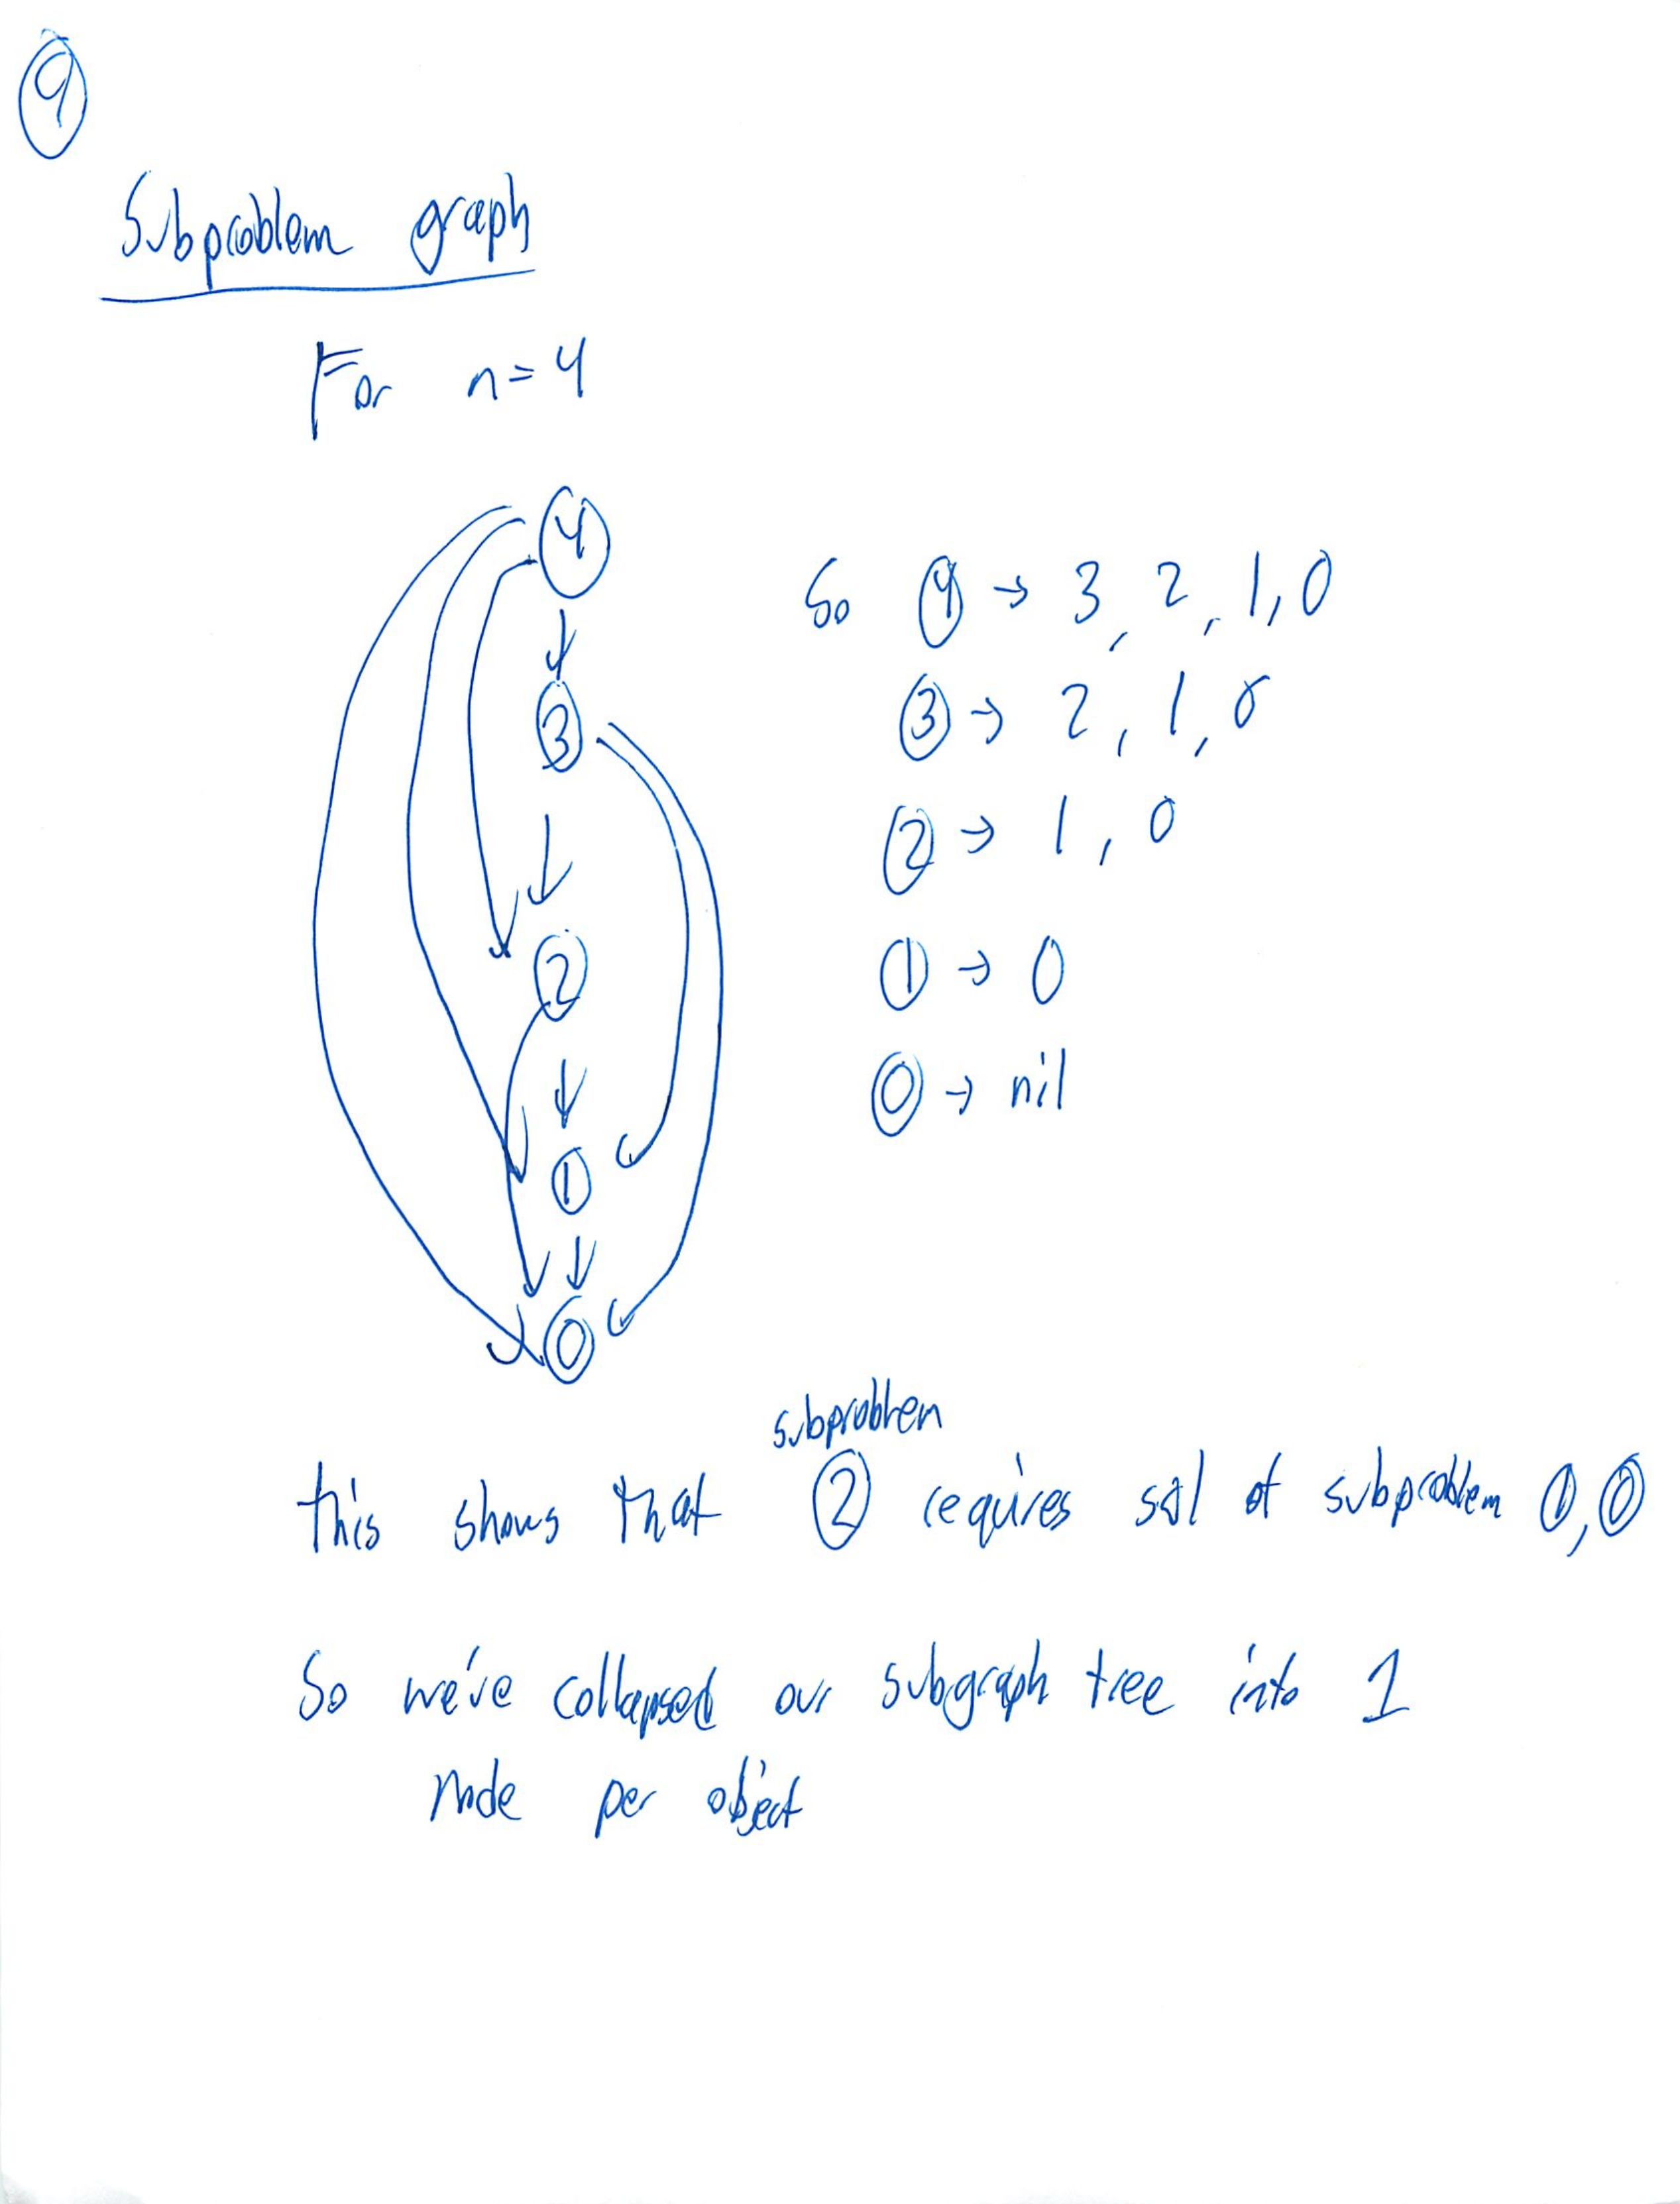 9
Subproblem graph
For n=4
4
3
2
1
0
So 4 → 3, 2, 1, 0
3 → 2, 1, 0
2 → 1, 0
1 → 0
0 → nil
subproblem
this shows that 2 requires sol of subproblem 1, 0
So we've collapsed our subgraph tree into 1
node per object